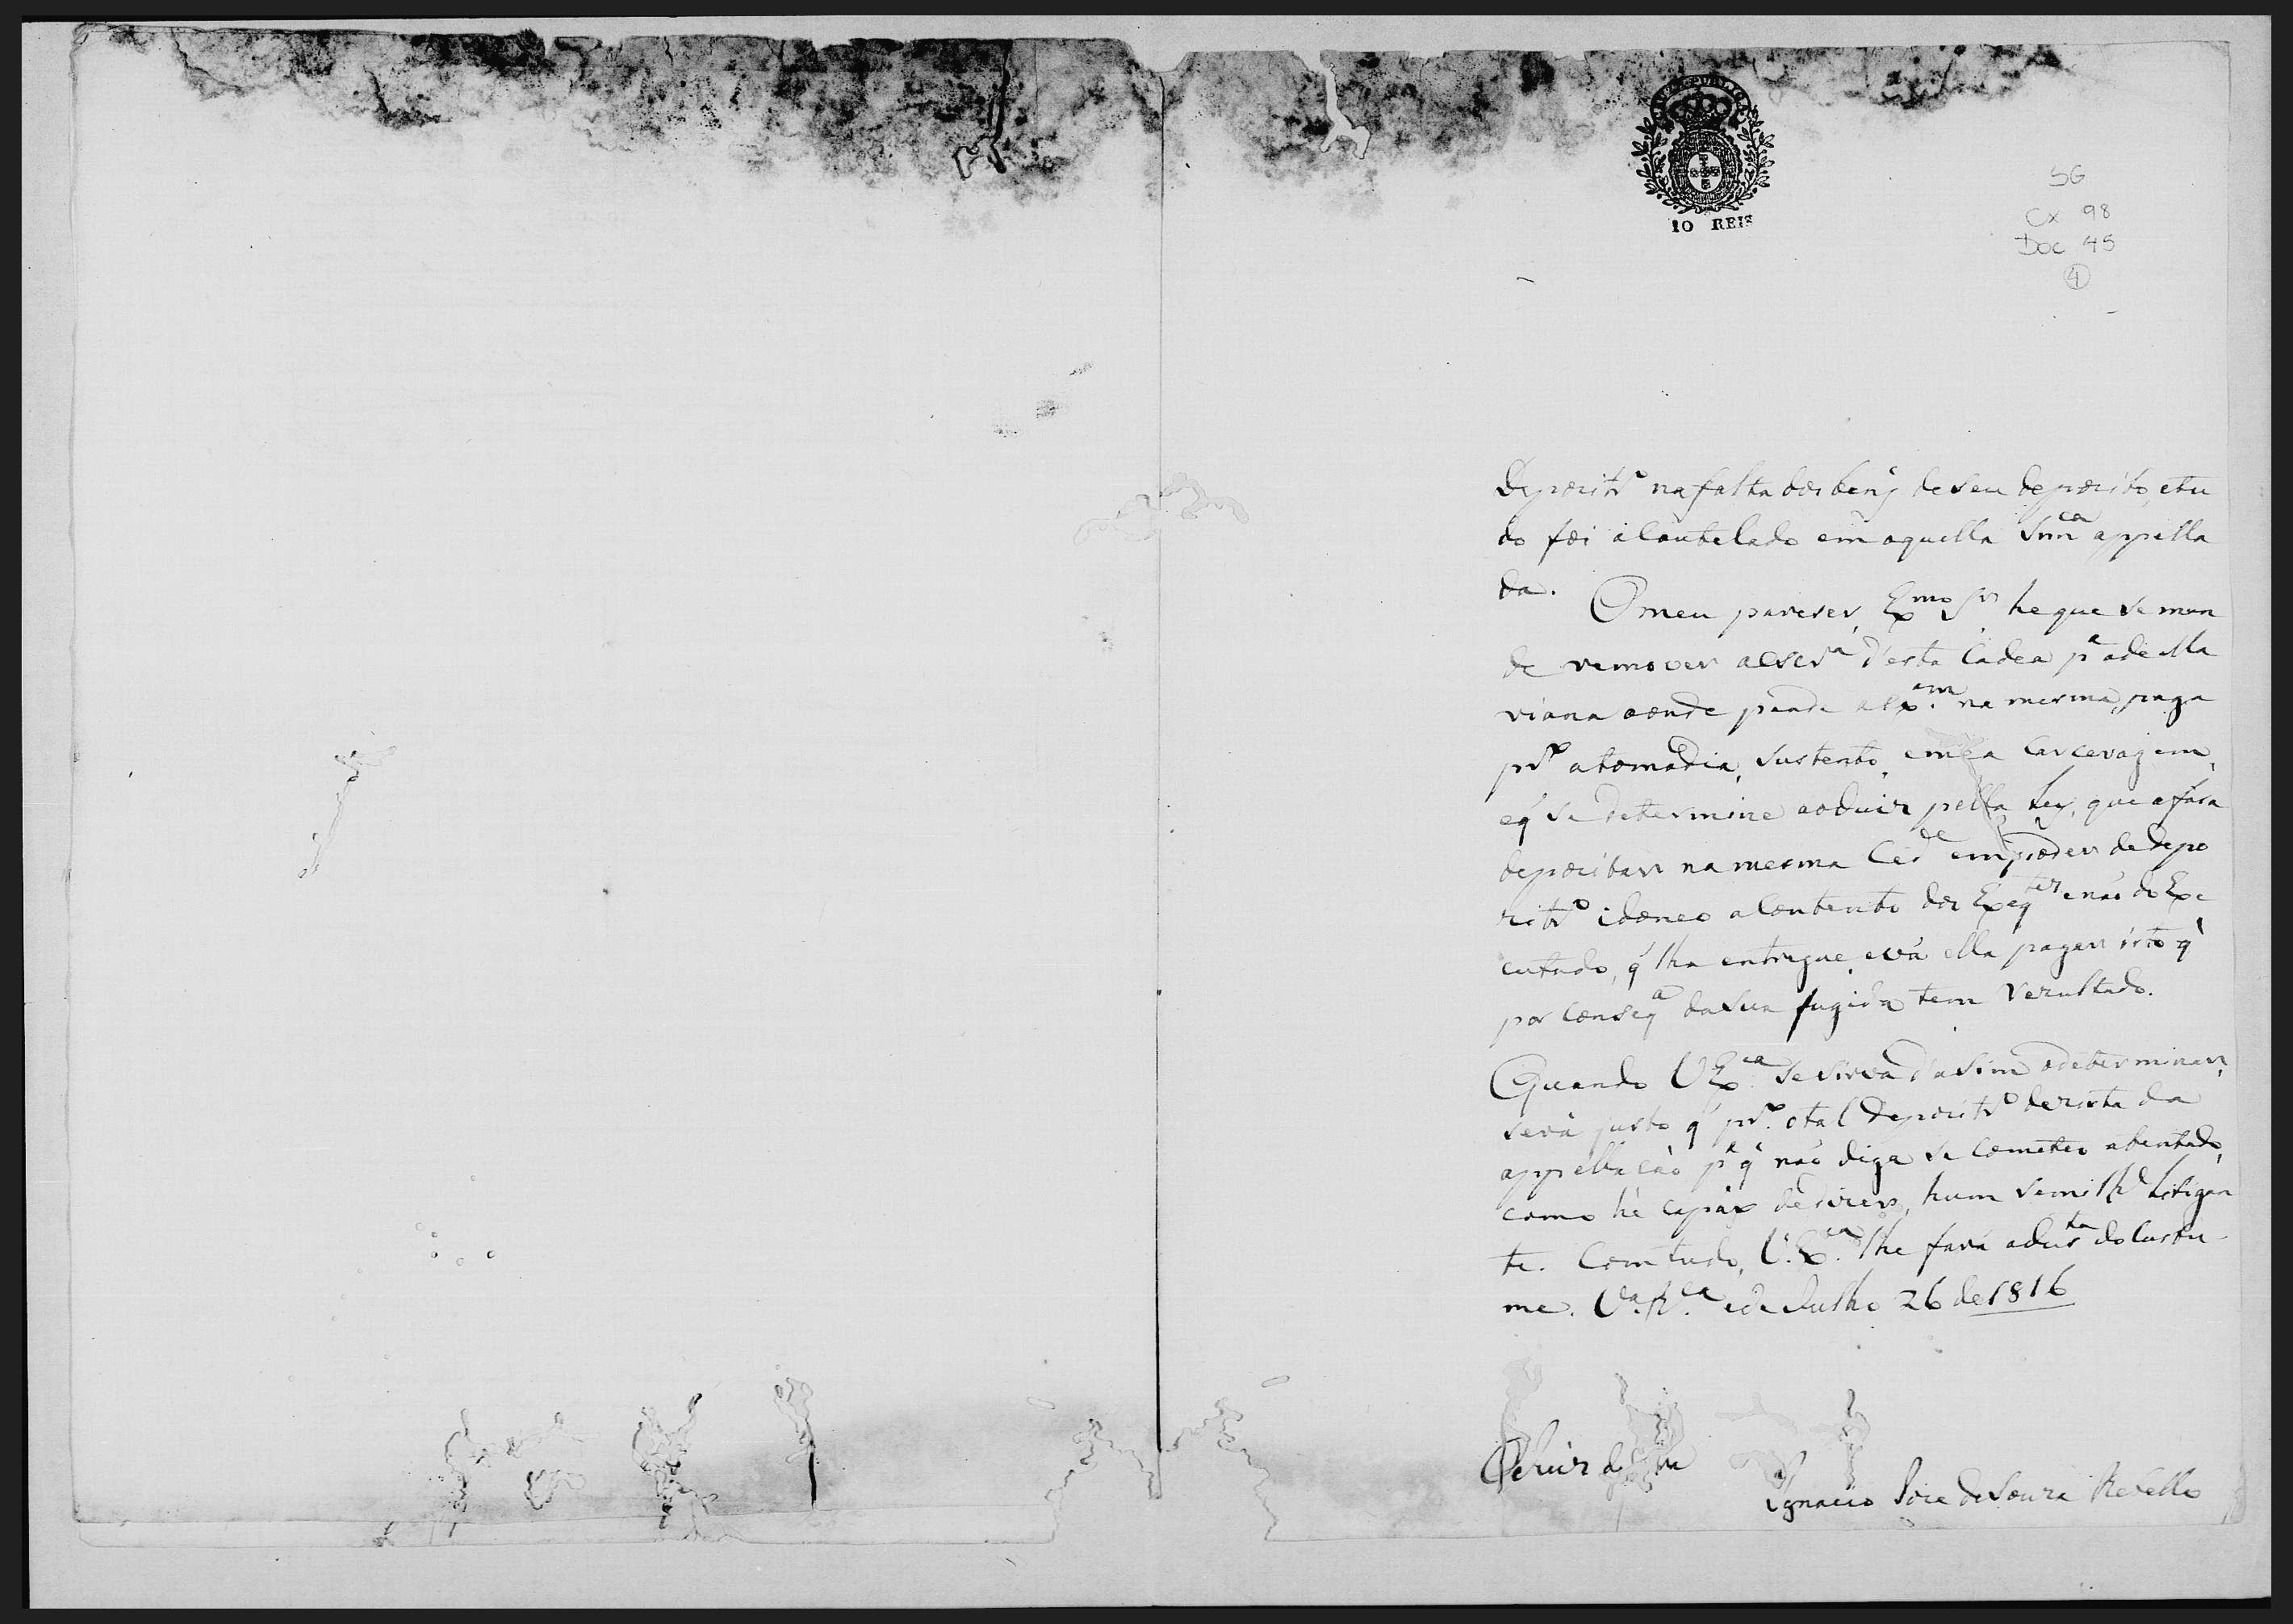 10 REIS
SG
Cx 98
Doc 45
4
Depozitrº na falta dos bens de seu depozito, etu
do foi a Cautelado em aquella Snnca appella
da.
O meu pareser, Exmo Sr he que se man
de remover a escra d'esta Cadea pª a de Ma
riana aonde pende a Exam na mesma, paga
prº a tomadia, sustento, e mea Carceragem,
eq' se determine ao Juiz pella Ley, que a fasa
depozitar na mesma Cide em poder de depo
zitrº idoneo a Contento dos Exeqtes e não do Exe
cutado, q' lha entregue, e vá ella pagar isto q'
por Conseqª da sua fugida tem rezultado.
Quando V Exca se sirva d'asim o determinar,
será justo q' prº o tal Depozitrº dezista da
appellação pª q' não diga se cometeo atentado,
como hé capáx de dizer, hum semilhe Litigan
te. Com tudo, V. Exca lhe fará a Justa do Custu
me. Vª Rca e de Julho 26 de 1816
O Juiz
Ignacio Joze de Souza Rebello